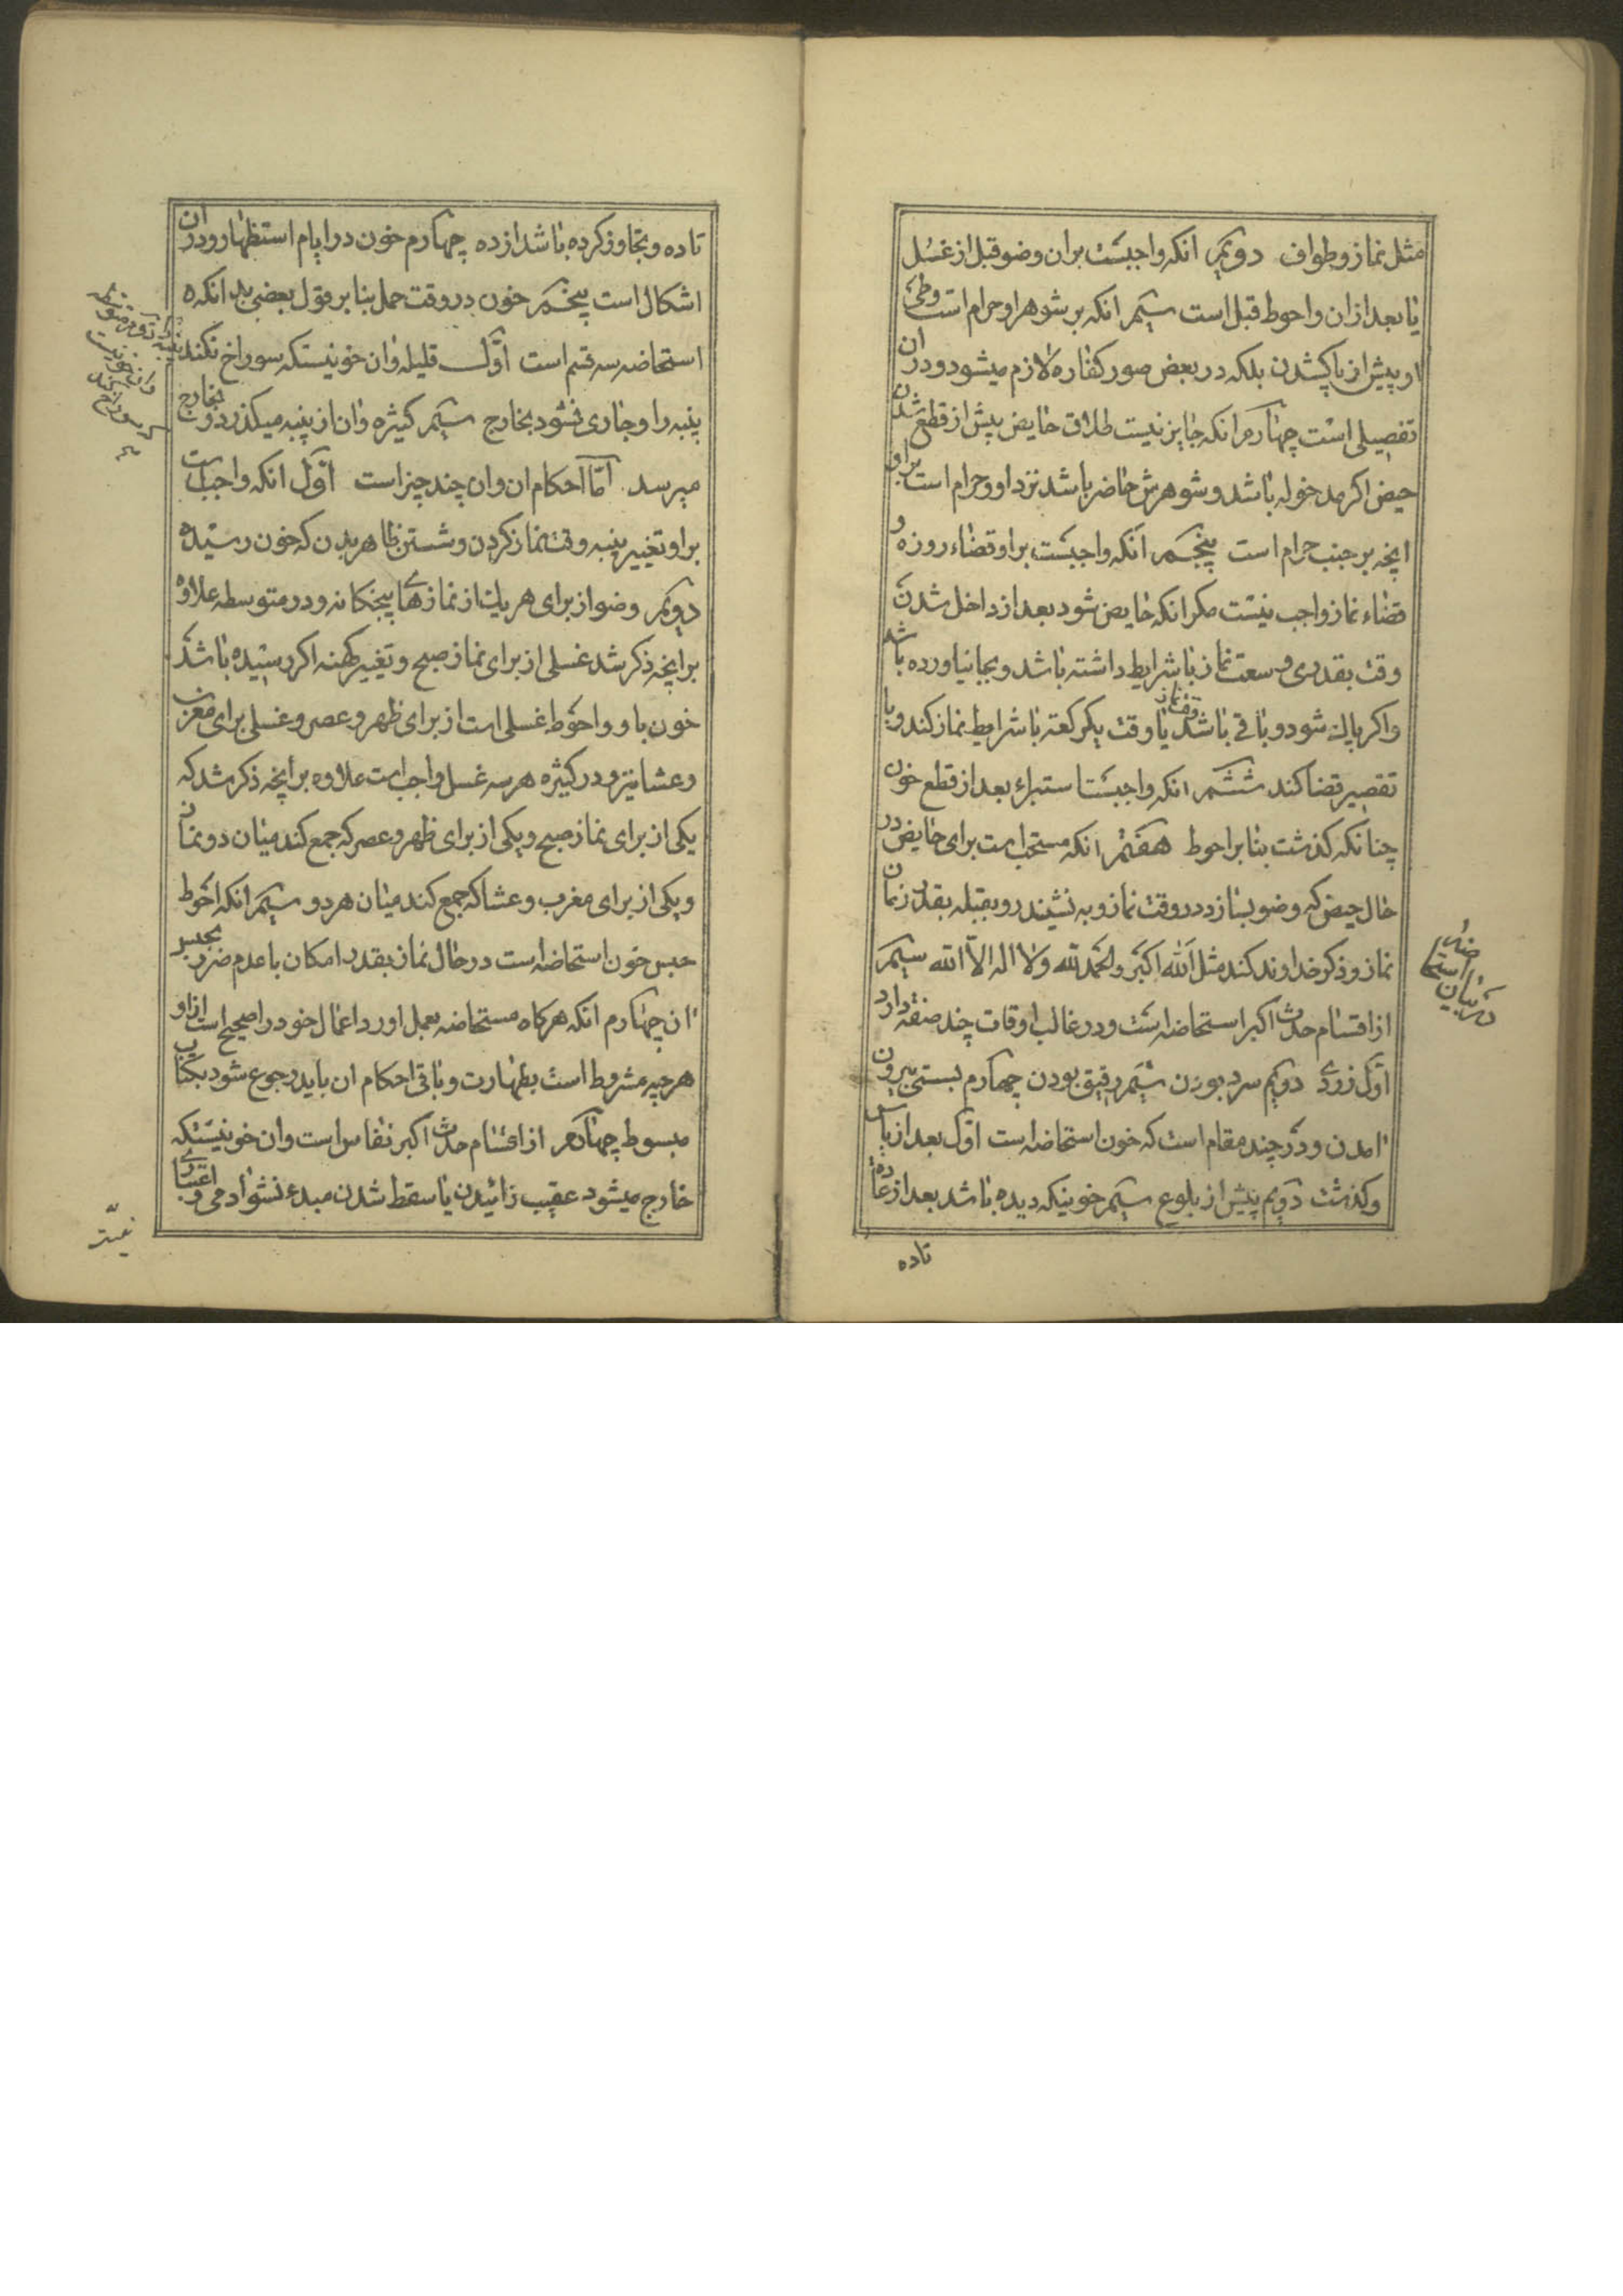 مثل نماز و طواف دویم انکه واجبست بران وضو قبل از غسل
یا بعد از ان و احوط قبل است سیم انکه بر شوهر او حرام است وطی
او پیش از پاکشدن بلکه در بعض صور کفاره لازم میشود و در ان
تفصیلی است چهارم انکه جایز نیست طلاق حایض پیش از قطع شدن
حیض اکر مدخوله باشد و شوهرش حاضر باشد نزد او و حرام است براو
انچه بر جنب حرام است پنجم انکه واجبست براو قضاء روزه و
قضاء نماز واجب نیست مکر انکه حایض شود بعد از داخل شدن
وقت بقدری وسعت نماز با شرایط داشته باشد و بجا نیاورده باشد
واکر پاک شود و باقی باشد یا وقت یکرکعت با شرایط نماز کند و با
وقت نماز
تقصیر قضا کند ششم انکه واجبست استبراء بعد از قطع خون
چنانکه کذشت بنابر احوط هفتم انکه مستحب است برای حایض در
حال حیض که وضو بسازد در وقت نماز و به نشیند رو بقبله بقدر زمان
نماز و ذکر خداوند کند مثل الله اکبر و الحمدلله ولا اله الا الله سیم
از اقسام حدث اکبر استحاضه است و در غالب اوقات چند صفة دارد
اول زردی دویم سرد بودن سیم رقیق بودن چهارم بسستی بیرون
امدن و در چند مقام است که خون استحاضه است اول بعد از یاس
وکذشت دویم پیش از بلوغ سیم خونیکه دیده باشد بعد از عادة
تاده
در بیان استحاضه
تاده و تجاوز کرده باشد از ده چهارم خون در ایام استظهار و در ان
اشکال است پنجم خون در وقت حمل بنا بر قول بعضی بدانکه
استحاضه سه قسم است اول قلیله وان خونیستکه سوراخ نکند
پنبه را و جاری نشود بخارج سیم کثیره وان از پنبه میکذرد و بخارج
میرسد اما احکام ان وان چند چیز است اول انکه واجب است
براو تغییر پنبه وقت نماز کردن و شستن ظاهر بدن که خون رسیده
دویم وضو از برای هریک از نمازهای پنجکانه و در متوسطه علاوه
برانچه ذکر شد غسلی از برای نماز صبح و تغییر کهنه اکر رسیده باشد
خون باو و احوط غسلی است از برای ظهر و عصر و غسلی برای مغرب
و عشا نیز و در کثیره هر سه غسل واجب است علاوه برانچه ذکر شد که
یکی از برای نماز صبح و یکی از برای ظهر و عصر که جمع کند میان دو نماز
و یکی از برای مغرب و عشا که جمع کند میان هر دو سیم انکه احوط
حبس خون استحاضه است در حال نماز بقدر امکان با عدم ضرر بحبس
ان چهارم انکه هرکاه مستحاضه بعمل اورد اعمال خود را صحیح است از او
هرچه مشروط است بطهارت و باقی احکام ان باید رجوع شود بکتاب
مبسوط چهارم از اقسام حدث اکبر نفاس است وان خونیستکه
خارج میشود عقیب زائیدن یا سقط شدن مبدء نشو ادمی و اعتباری
نیست
پنبه را دویم متوسطه
وان خونیست
که سوراخ کند